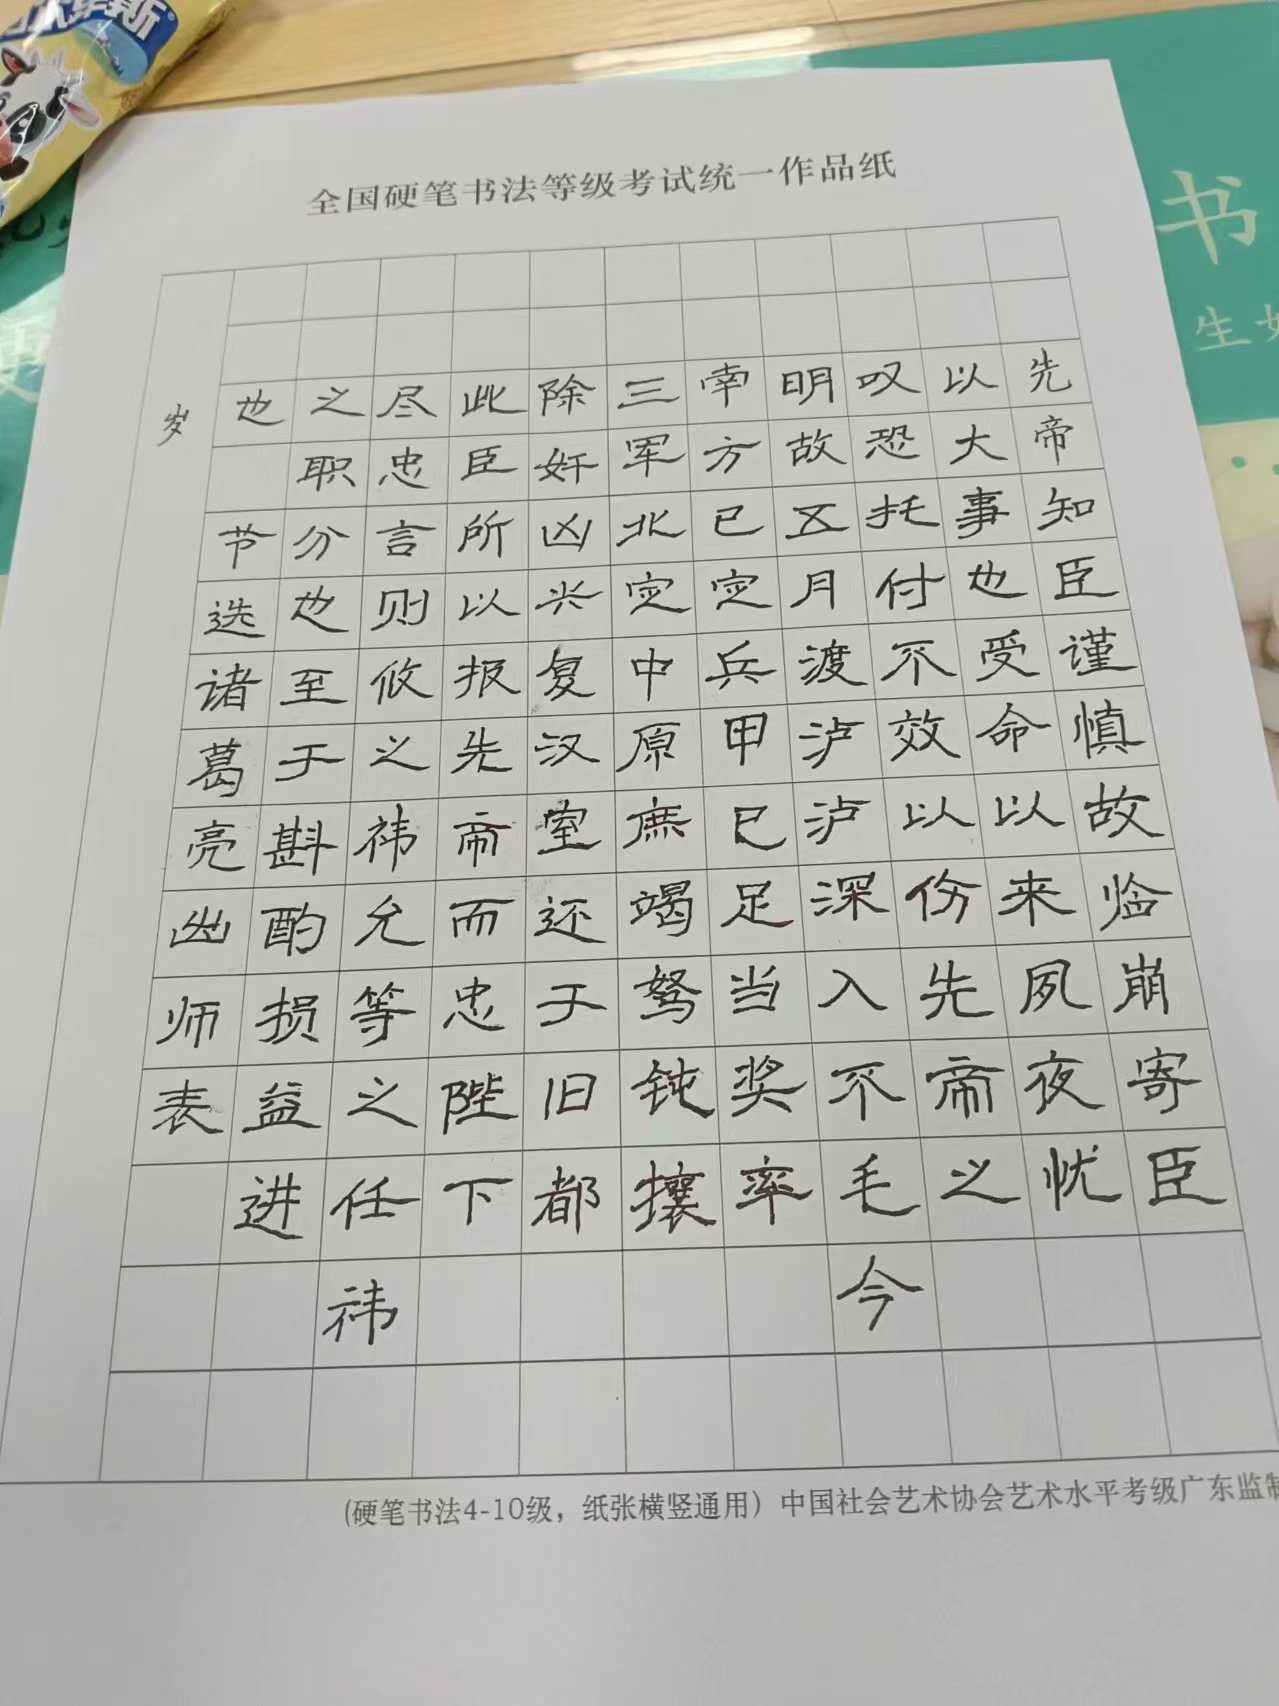 全国硬笔书法等级考试统一作品纸
先帝知臣谨慎故临崩寄臣
以大事也受命以来夙夜忧
叹恐托付不效以伤先帝之
明故五月渡泸泸深入不毛今
南方已定兵甲已足当奖率
三军北定中原庶竭驽钝攘
除奸凶兴复汉室还于旧都
此臣所以报先帝而忠陛下
尽忠言则攸之祎允等之任祎
之职分也至于斟酌损益进
也 节选诸葛亮出师表
岁
(硬笔书法4-10级，纸张横竖通用) 中国社会艺术协会艺术水平考级广东监制
书
生